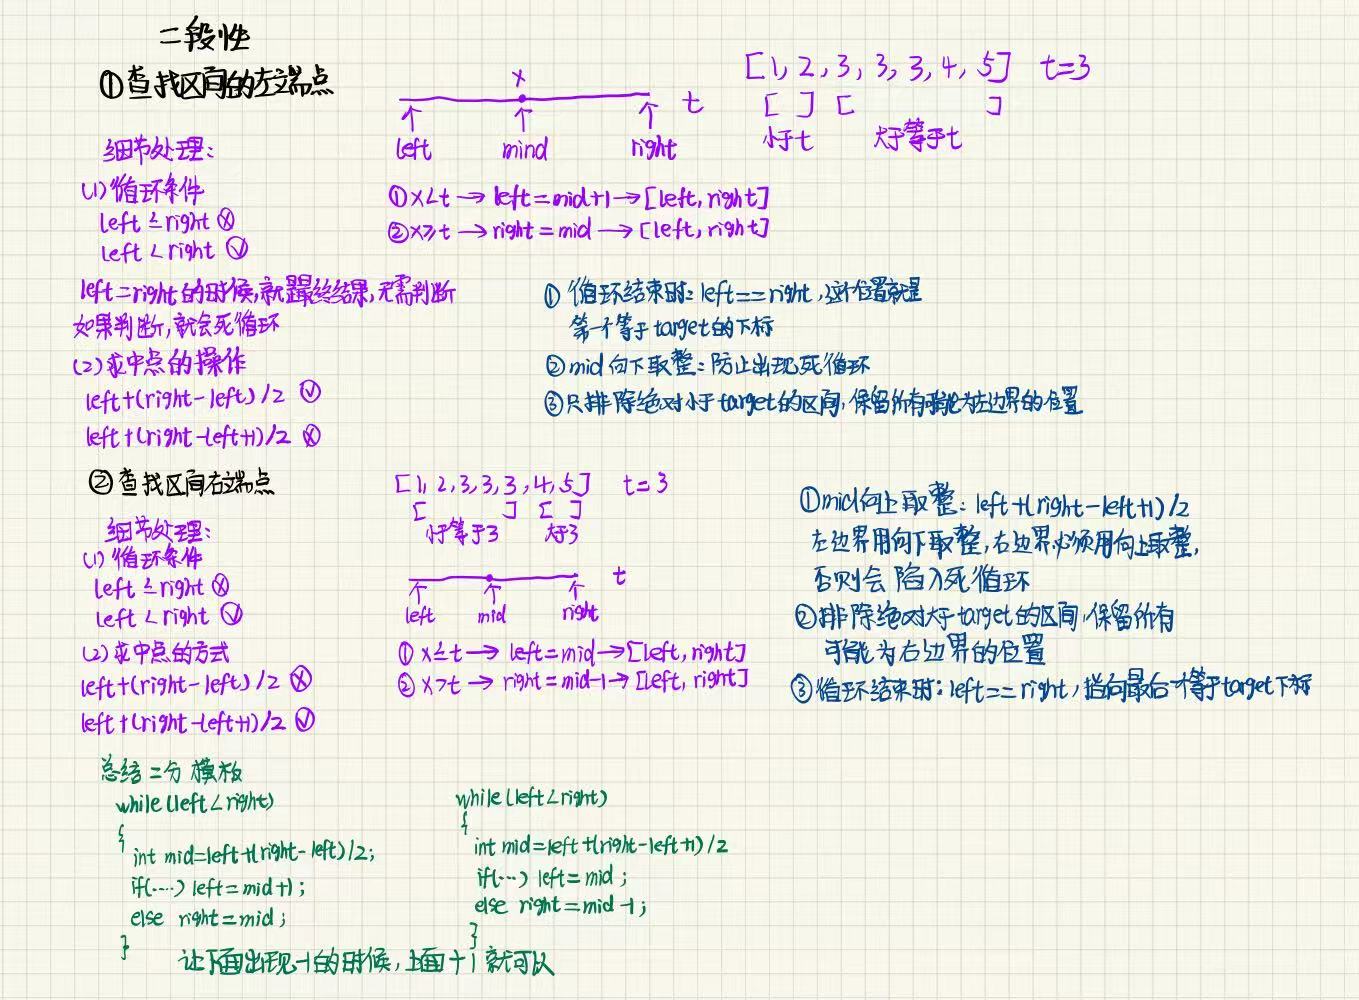 二段性
①查找区间的左端点
x
[1, 2, 3, 3, 3, 4, 5] t=3
t
[ ] [ ]
left mind right
小于t 大于等于t
细节处理:
(1)循环条件
left≤right ⓧ
left<right ✓
①x<t→left=mid+1→[left,right]
②x≥t→right=mid→[left,right]
left=right的时候,就是最终结果,无需判断
如果判断,就会死循环
(2)求中点的操作
left+(right-left)/2 ✓
left+(right-left+1)/2 ⓧ
①循环结束时:left==right,这个位置就是
第一个等于target的下标
②mid向下取整:防止出现死循环
③只排除绝对小于target的区间,保留所有可能为左边界的位置
②查找区间右端点
[1,2,3,3,3,4,5] t=3
[ ] [ ]
小于等于3 大于3
细节处理:
(1)循环条件
left≤right ⓧ
left<right ✓
t
left mid right
(2)求中点的方式
left+(right-left)/2 ⓧ
left+(right-left+1)/2 ✓
①x≤t→left=mid→[left,right]
②x>t→right=mid-1→[left,right]
①mid向上取整:left+(right-left+1)/2
左边界用向下取整,右边界必须用向上取整,
否则会陷入死循环
②排除绝对大于target的区间,保留所有
可能为右边界的位置
③循环结束时:left==right,指向最后一个等于target下标
总结二分模板
while(left<right)
{
int mid=left+(right-left)/2;
if(....) left=mid+1;
else right=mid;
}
while(left<right)
{
int mid=left+(right-left+1)/2
if(...) left=mid;
else right=mid-1;
}
让下面出现-1的时候,上面+1就可以